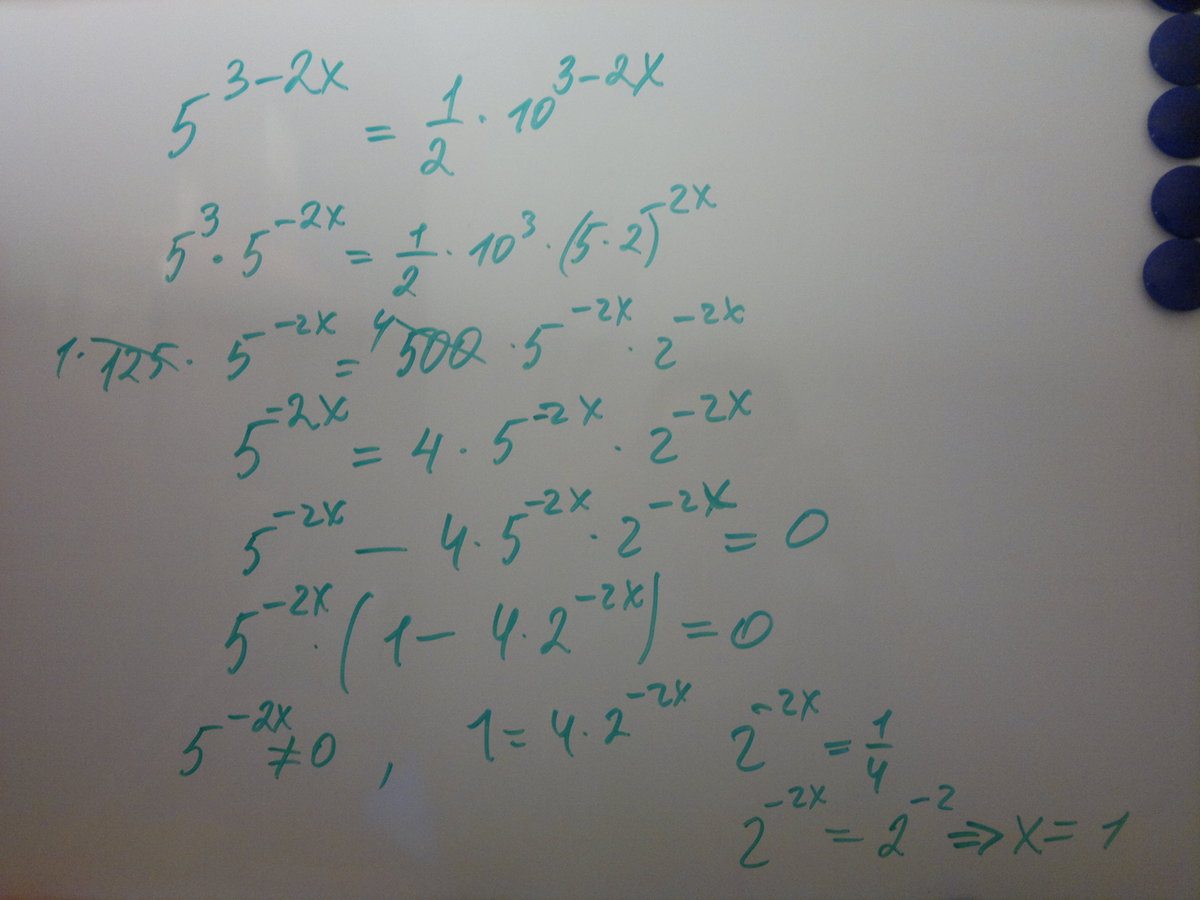 5^{3-2x} = \frac{1}{2} · 10^{3-2x}
5^3 · 5^{-2x} = \frac{1}{2} · 10^3 · (5·2)^{-2x}
1 · 125 · 5^{-2x} = 4 500 · 5^{-2x} · 2^{-2x}
5^{-2x} = 4 · 5^{-2x} · 2^{-2x}
5^{-2x} - 4 · 5^{-2x} · 2^{-2x} = 0
5^{-2x} · (1 - 4 · 2^{-2x}) = 0
5^{-2x} ≠ 0 , 1 = 4 · 2^{-2x} 2^{-2x} = \frac{1}{4}
2^{-2x} = 2^{-2} ⇒ x = 1